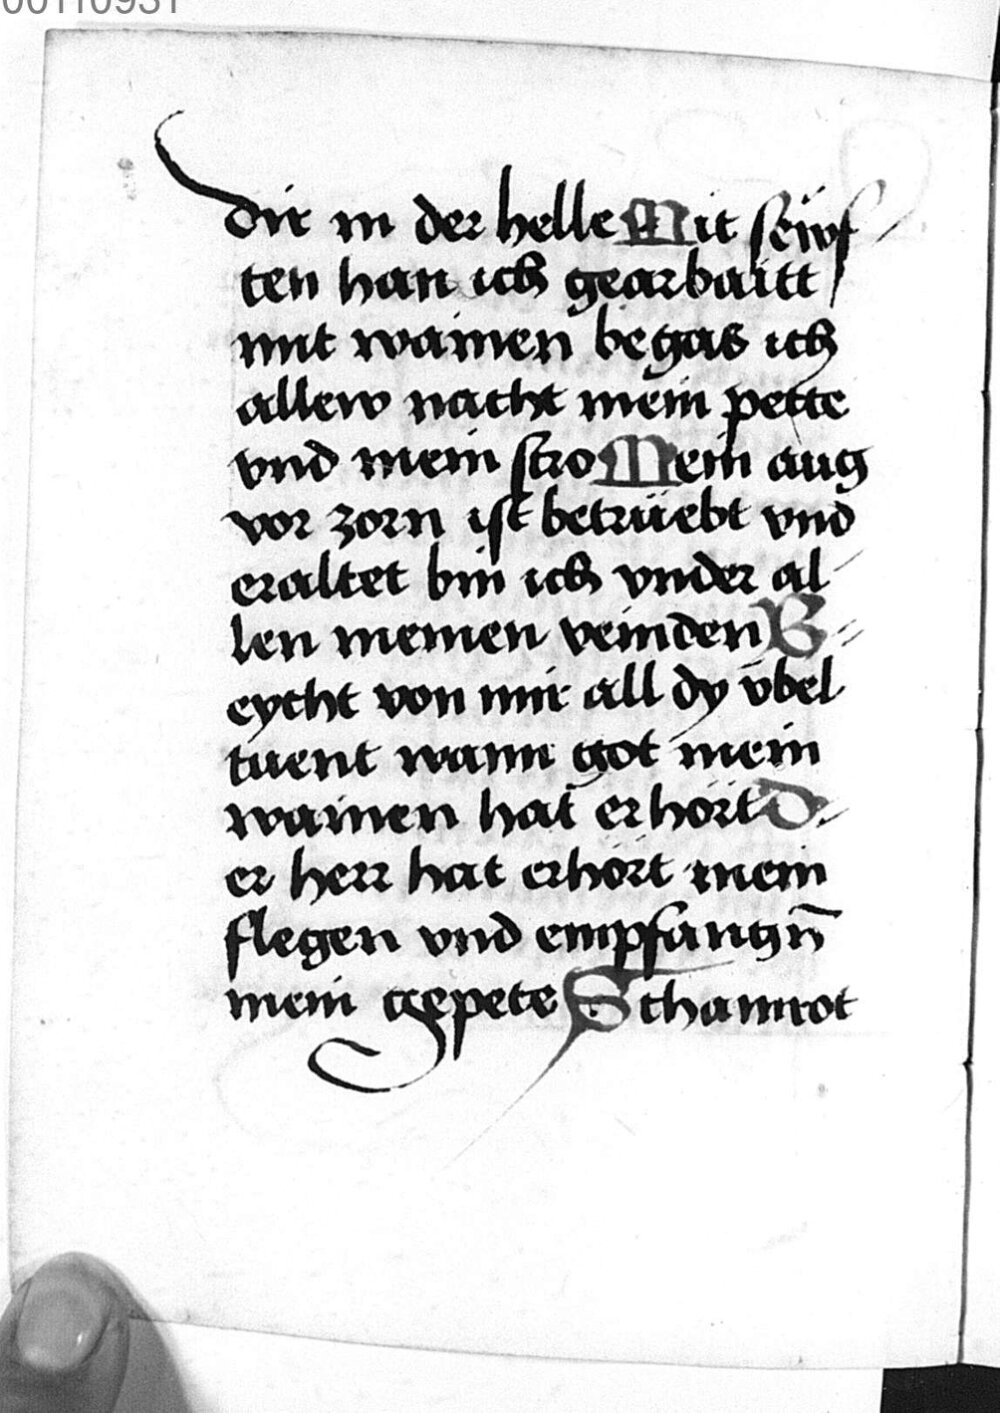 00110931
dir in der helle Mit sëwf
ten han ich gearbaitt
mit wainen begas ich
allew nacht mein pette
vnd mein stro Mein aug
vor zorn ist betrüebt vnd
eraltet bin ich vnder al
len meinen veinden W
eycht von mir all dy v̈bel
tuent wann got mein
wainen hat erhört D
er herr hat erhört mein
flegen vnd empfangn̄
mein gepete Schamrot